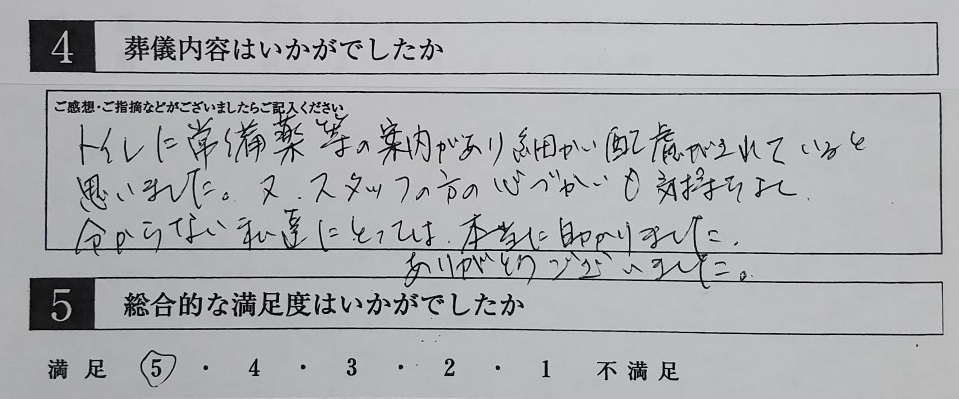 4 葬儀内容はいかがでしたか
ご感想・ご指摘などがございましたらご記入ください
トイレに常備薬等の案内があり細かい配慮がされていると
思いました。又、スタッフの方の心づかいも気持ちよく
分からない私達にとっては、本当に助かりました。
ありがとうございました。
5 総合的な満足度はいかがでしたか
満足 5 ・ 4 ・ 3 ・ 2 ・ 1 不満足